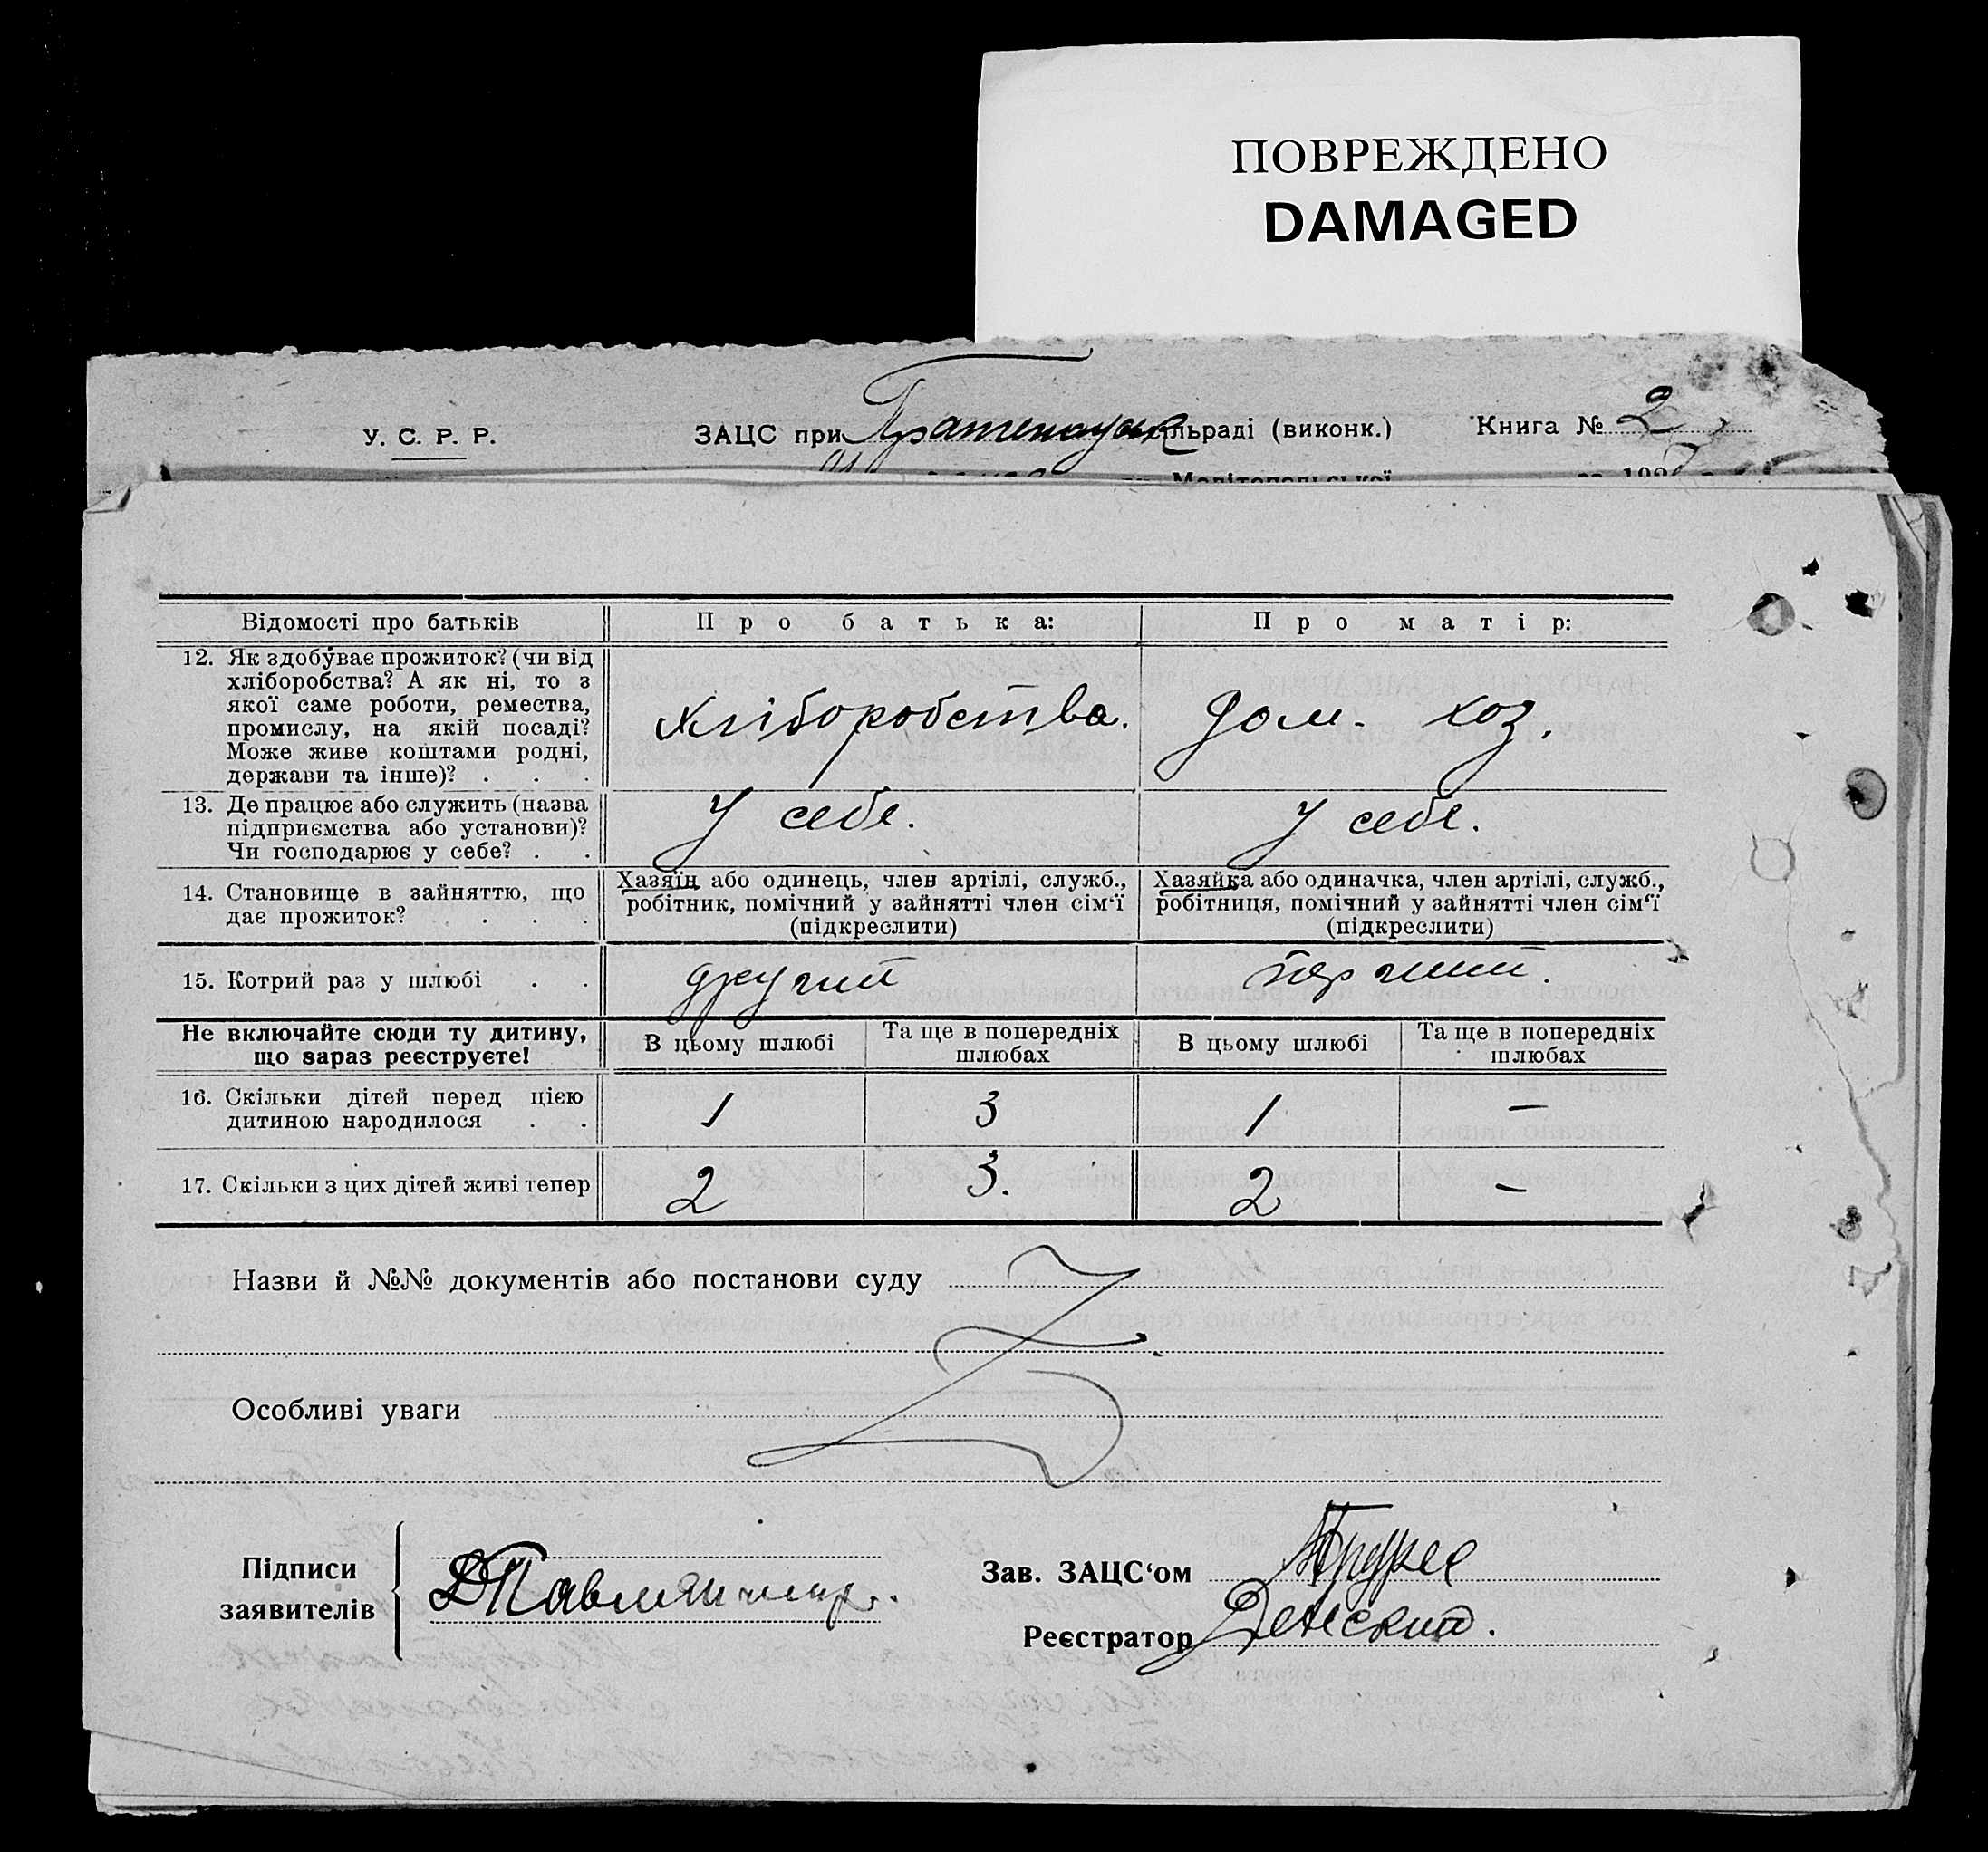 ПОВРЕЖДЕНО
DAMAGED
У. С. Р. Р.
ЗАЦС при сільраді (виконк.)
Книга № 2
Мелітопольської
Відомості про батьків
Про батька:
Про матір:
12. Як здобуває прожиток? (чи від
хліборобства? А як ні, то з
якої саме роботи, ремества,
промислу, на якій посаді?
Може живе коштами родні,
держави та інше)? . . .
хліборобства.
дом. хоз.
13. Де працює або служить (назва
підприємства або установи)?
Чи господарює у себе? . .
У себе.
У себе.
14. Становище в зайняттю, що
дає прожиток? . . . .
Хазяїн або одинець, член артілі, служб.,
робітник, помічний у зайнятті член сім'ї
(підкреслити)
Хазяйка або одиначка, член артілі, служб.,
робітниця, помічний у зайнятті член сім'ї
(підкреслити)
15. Котрий раз у шлюбі . .
другий
перший.
Не включайте сюди ту дитину,
що зараз реєструєте!
В цьому шлюбі
Та ще в попередніх
шлюбах
В цьому шлюбі
Та ще в попередніх
шлюбах
16. Скільки дітей перед цією
дитиною народилося . .
1
3
1
—
17. Скільки з цих дітей живі тепер
2
3.
2
—
Назви й №№ документів або постанови суду
Особливі уваги
Підписи
заявителів
Зав. ЗАЦС'ом
Реєстратор